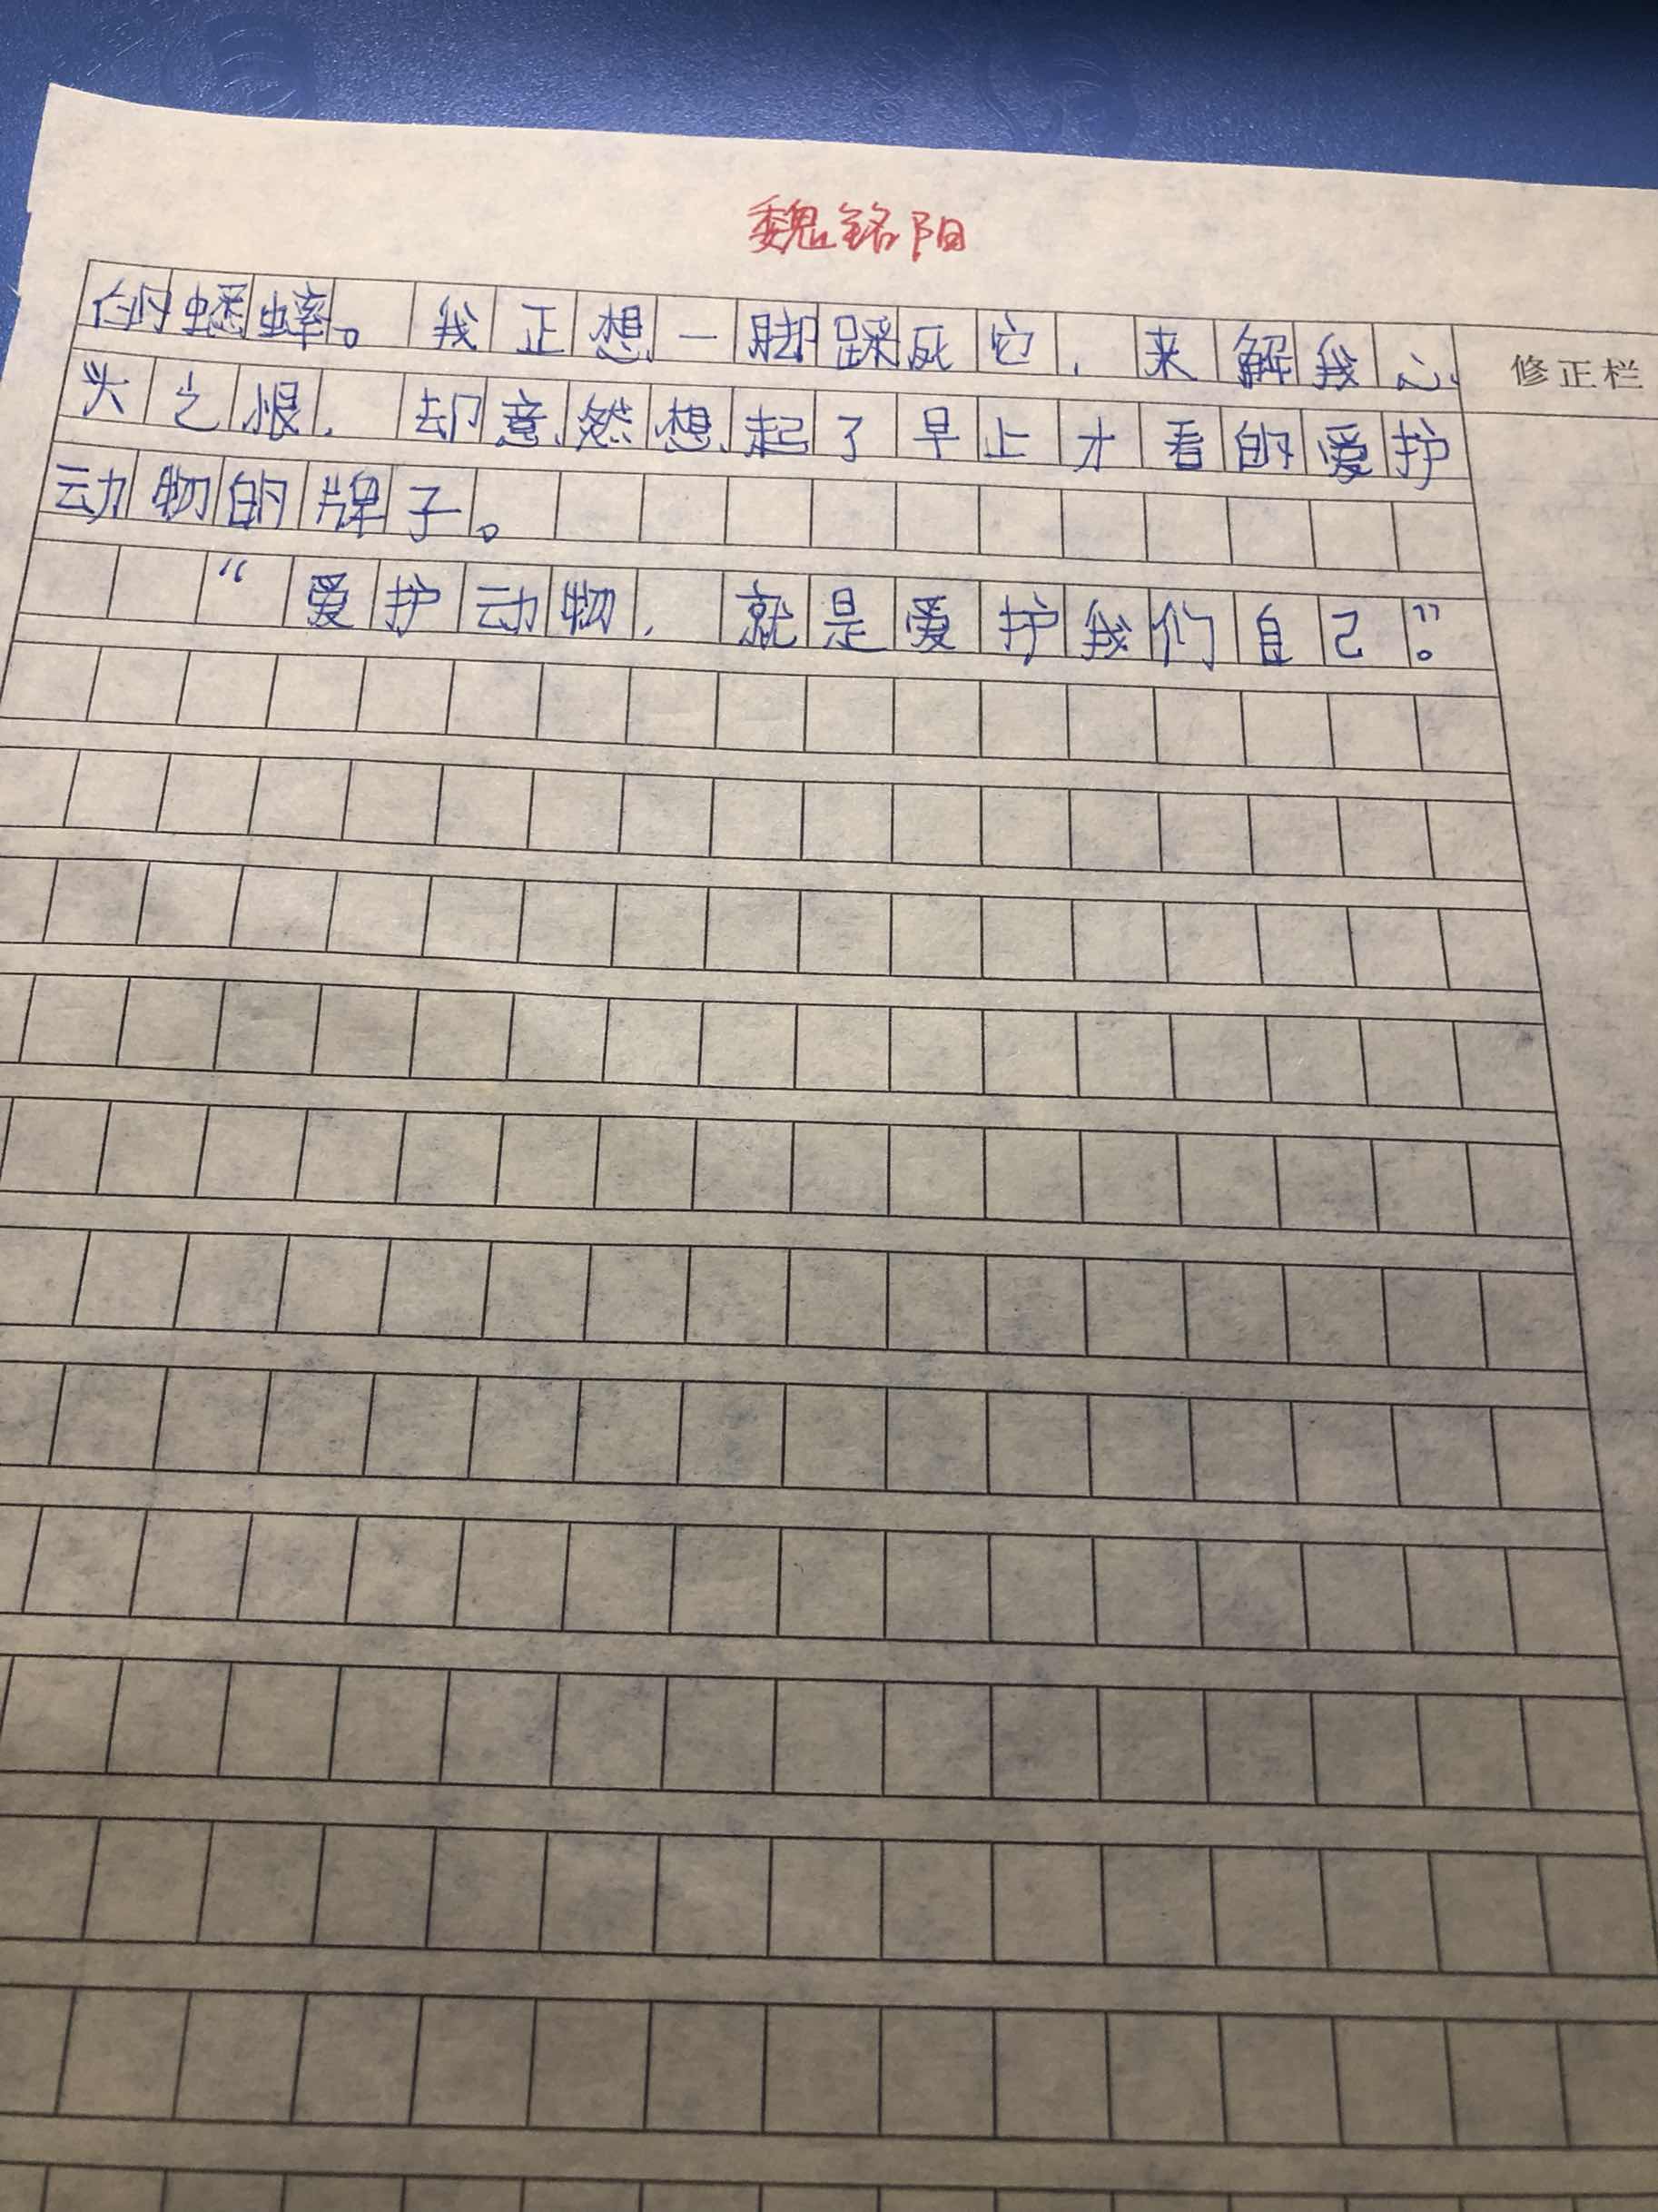 魏铭阳
的蟋蟀。我正想一脚踩死它,来解我心
修正栏
头之恨,却意然想起了早上才看的爱护
动物的牌子。
“爱护动物,就是爱护我们自己”。